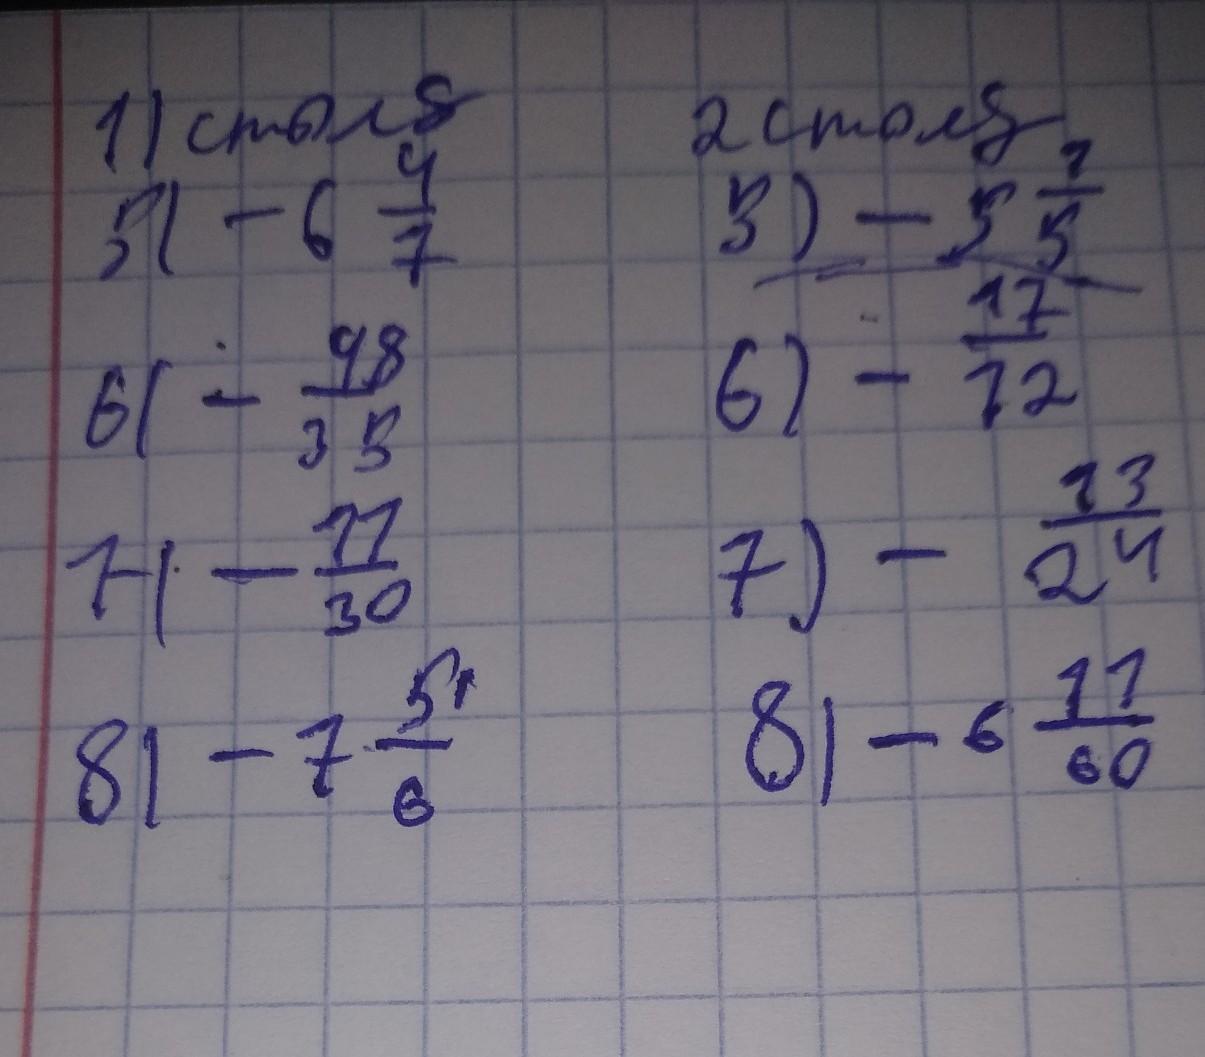 1) столб
5) - 6 4/7
6) - 48/35
7) - 11/30
8) - 7 5/6
2 столб
5) - 5 1/5
6) - 17/12
7) - 13/24
8) - 6 11/60